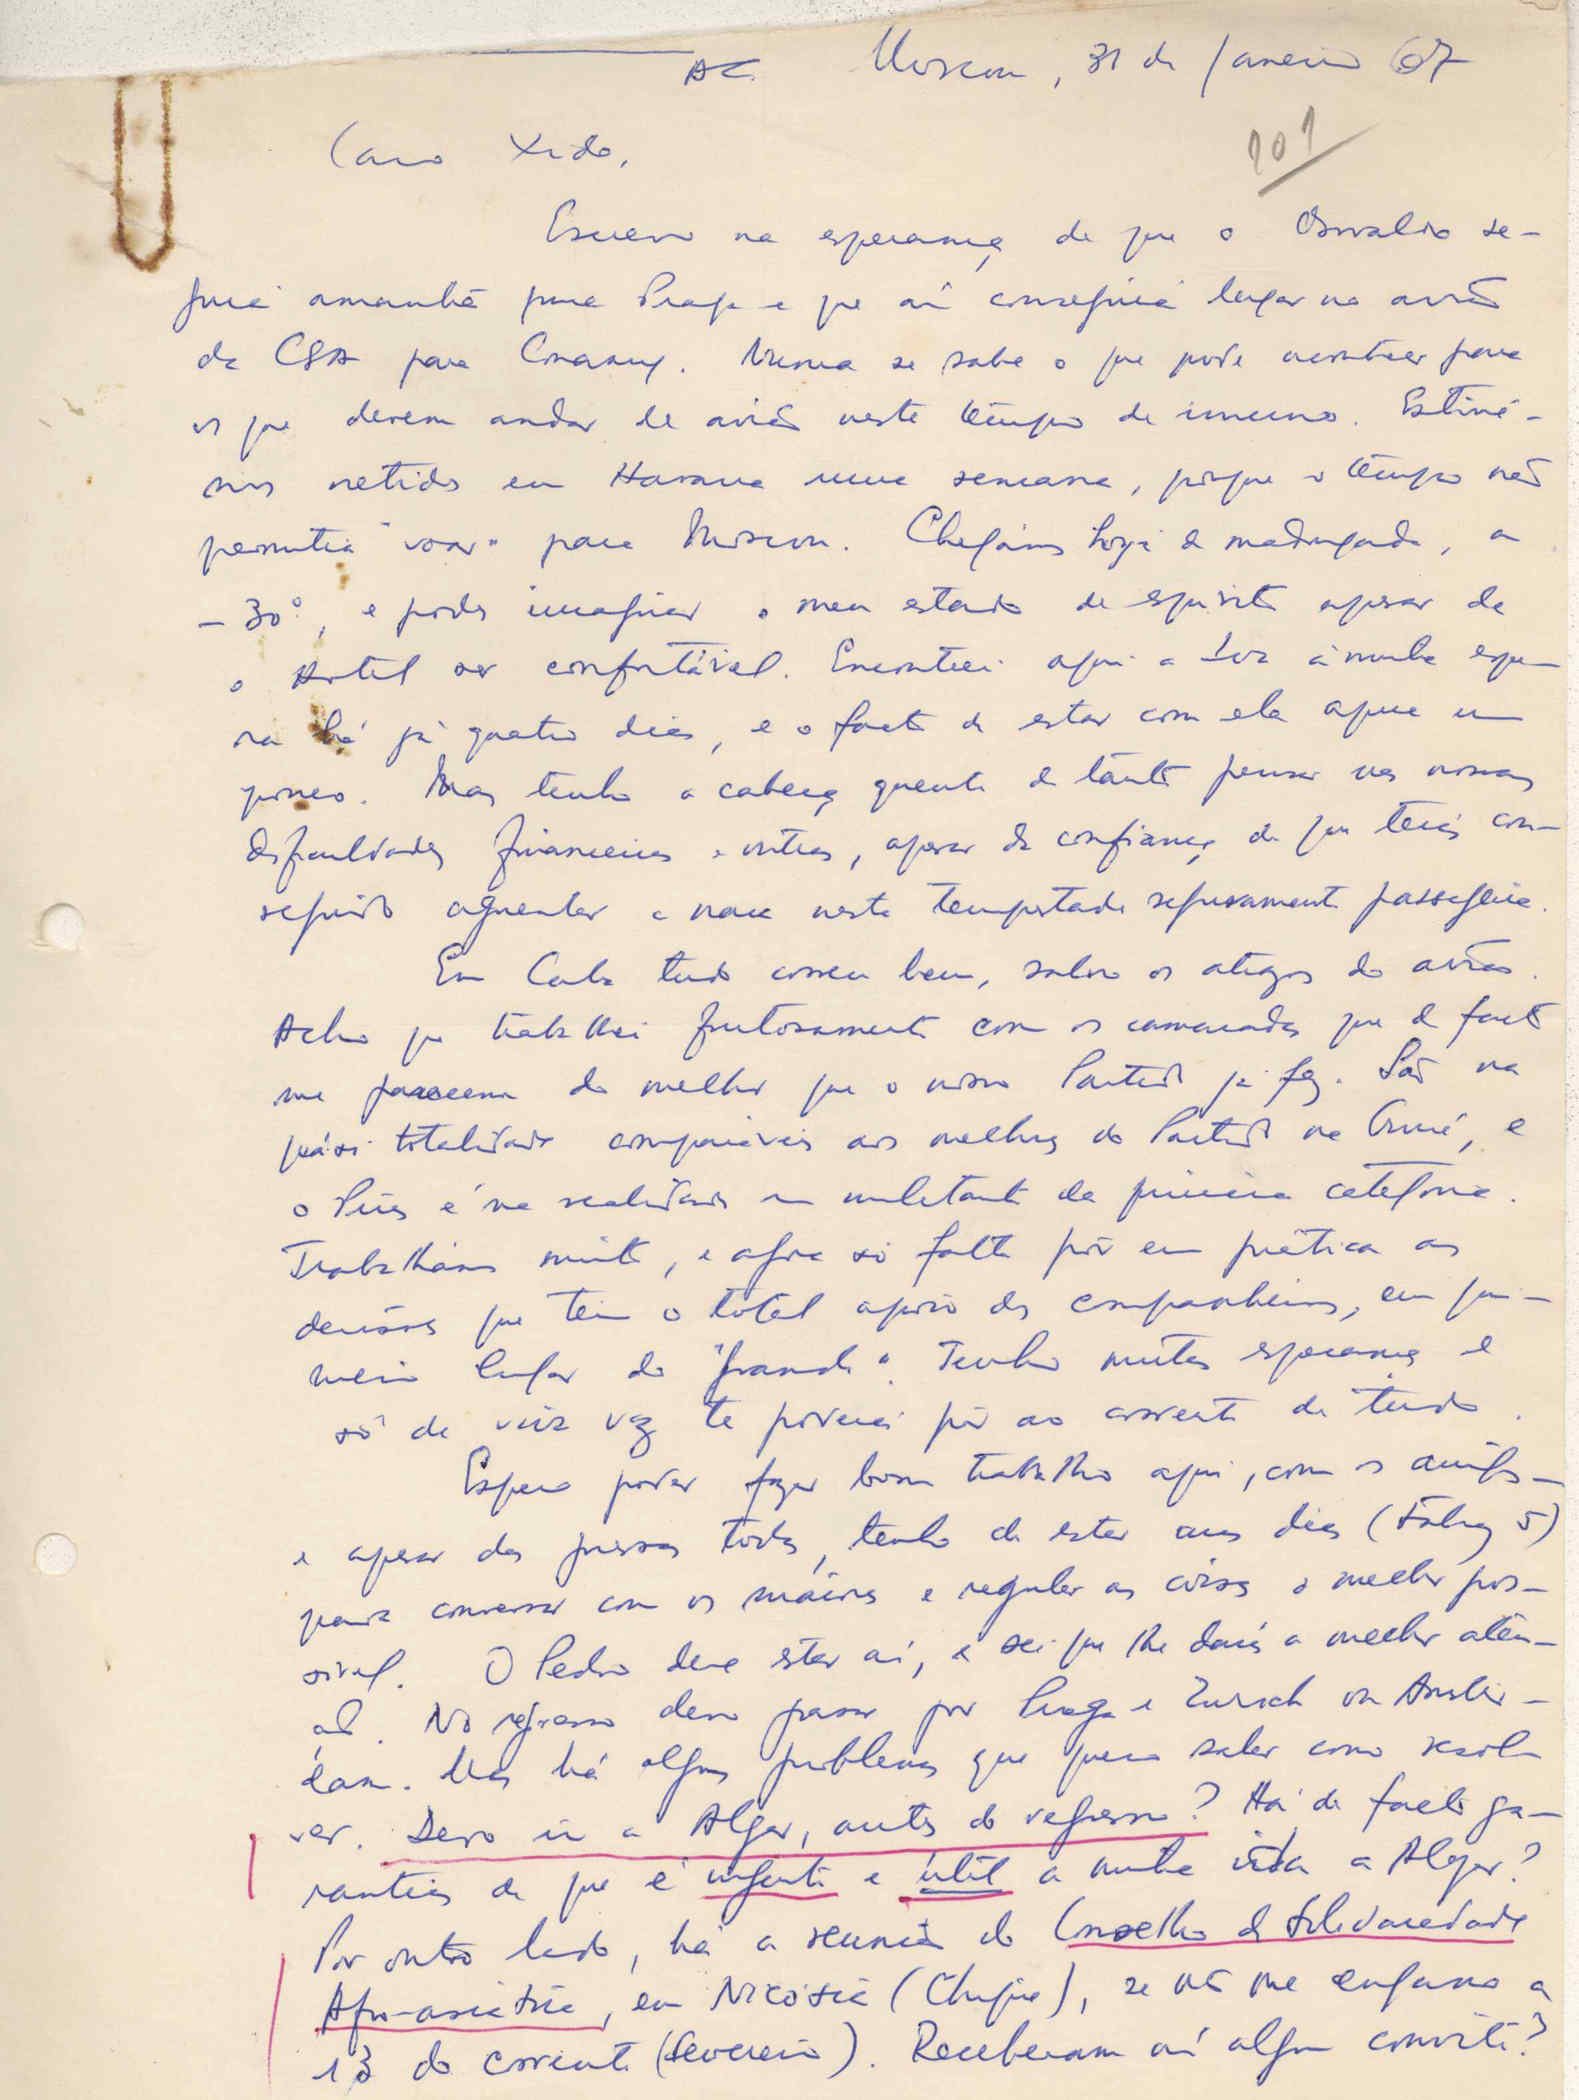 AC. Moscou, 31 de Janeiro 67
101
Caro Xido,
Escrevo na esperança de que o Osvaldo se-
guirá amanhã para Praga e que aí conseguirá lugar no avião
da CSA para Conakry. Nunca se sabe o que pode acontecer para
os que devem andar de avião neste tempo de inverno. Estive-
mos retidos em Havana uma semana, porque o tempo não
permitia "voar" para Moscou. Chegámos hoje de madrugada, a
-30º, e podes imaginar o meu estado de espírito apesar de
o Hotel ser confortável. Encontrei aqui a à minha espe-
ra há já quatro dias, e o facto de estar com ela um
pouco. Mas tenho a cabeça quente de tanto pensar nas nossas
dificuldades financeiras e outras, apesar da confiança de que terás con-
seguido aguentar a nave nesta tempestade seguramente passageira.
Em Cuba tudo correu bem, salvo os atrazos do avião.
Acho que trabalhei frutosamente com os camaradas que de facto
me parecem do melhor que o nosso Partido já fez. São na
quási totalidade comparáveis aos melhores do Partido na Guiné, e
o Pires é na realidade um militante de primeira categoria.
Trabalhámos muito, e agora só falta pôr em prática as
decisões que têm o total apoio dos companheiros, em pri-
meiro lugar do "grande". Tenho muita esperança e
só de viva voz te poderei pôr ao corrente de tudo.
Espero poder fazer bom trabalho aqui, com os amigos
e apesar das pressas todas, tenho de estar uns dias (talvez 5)
para conversar com os máiores e regular as coisas o melhor pos-
sível. O Pedro deve estar aí, e sei que lhe darás a melhor aten-
ção. No regresso devo passar por Praga e Zurich ou Amster-
dam. Mas há alguns problemas que quero saber como resol-
ver. Devo ir a Alger, antes do regresso? Há de facto ga-
rantias de que é urgente e útil a minha ida a Alger?
Por outro lado, há a reunião do Conselho de Solidariedade
Afro-asiática, em Nicósia (Chipre), se não me engano a
13 do corrente (Fevereiro). Receberam aí algum convite?